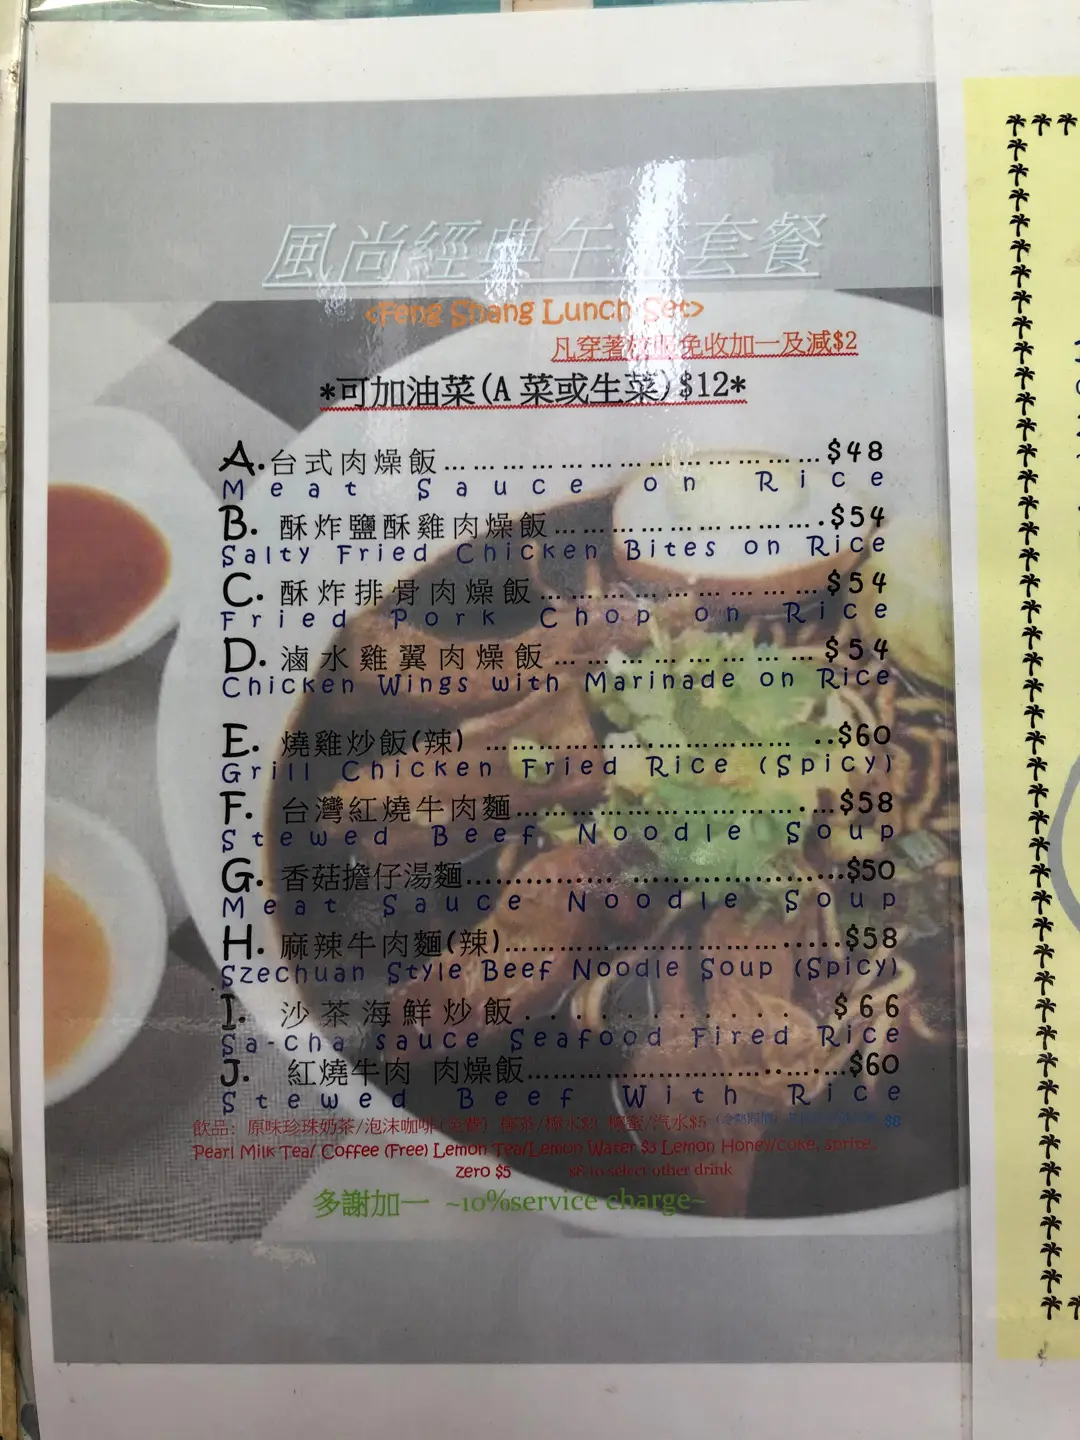 風尚經典午 套餐
<Feng Shang Lunch Set>
凡穿著 免收加一及減$2
*可加油菜(A 菜或生菜)$12*
A.台式肉燥飯……………………………………$48
Meat Sauce on Rice
B. 酥炸鹽酥雞肉燥飯……………………….$54
Salty Fried Chicken Bites on Rice
C. 酥炸排骨肉燥飯…………………………$54
Fried Pork Chop on Rice
D. 滷水雞翼肉燥飯… … … … … … …$54
Chicken Wings with Marinade on Rice
E. 燒雞炒飯(辣) ……………….…………… ..$60
Grill Chicken Fried Rice (Spicy)
F. 台灣紅燒牛肉麵…………………………….…$58
Stewed Beef Noodle Soup
G. 香菇擔仔湯麵…………… …………………..$50
Meat Sauce Noodle Soup
H. 麻辣牛肉麵(辣)…………………………......$58
Szechuan Style Beef Noodle Soup (Spicy)
I. 沙茶海鮮炒飯. . . . . . . . . . $66
Sa-cha sauce Seafood Fired Rice
J. 紅燒牛肉 肉燥飯………………………..…...$60
Stewed Beef With Rice
飲品: 原味珍珠奶茶/泡沫咖啡(免費) 檸茶/檸水$3 檸蜜/汽水$5 $8
Pearl Milk Tea/ Coffee (Free) Lemon Tea/Lemon Water $3 Lemon Honey/coke, sprite,
zero $5 $8 to select other drink
多謝加一 ~10%service charge~